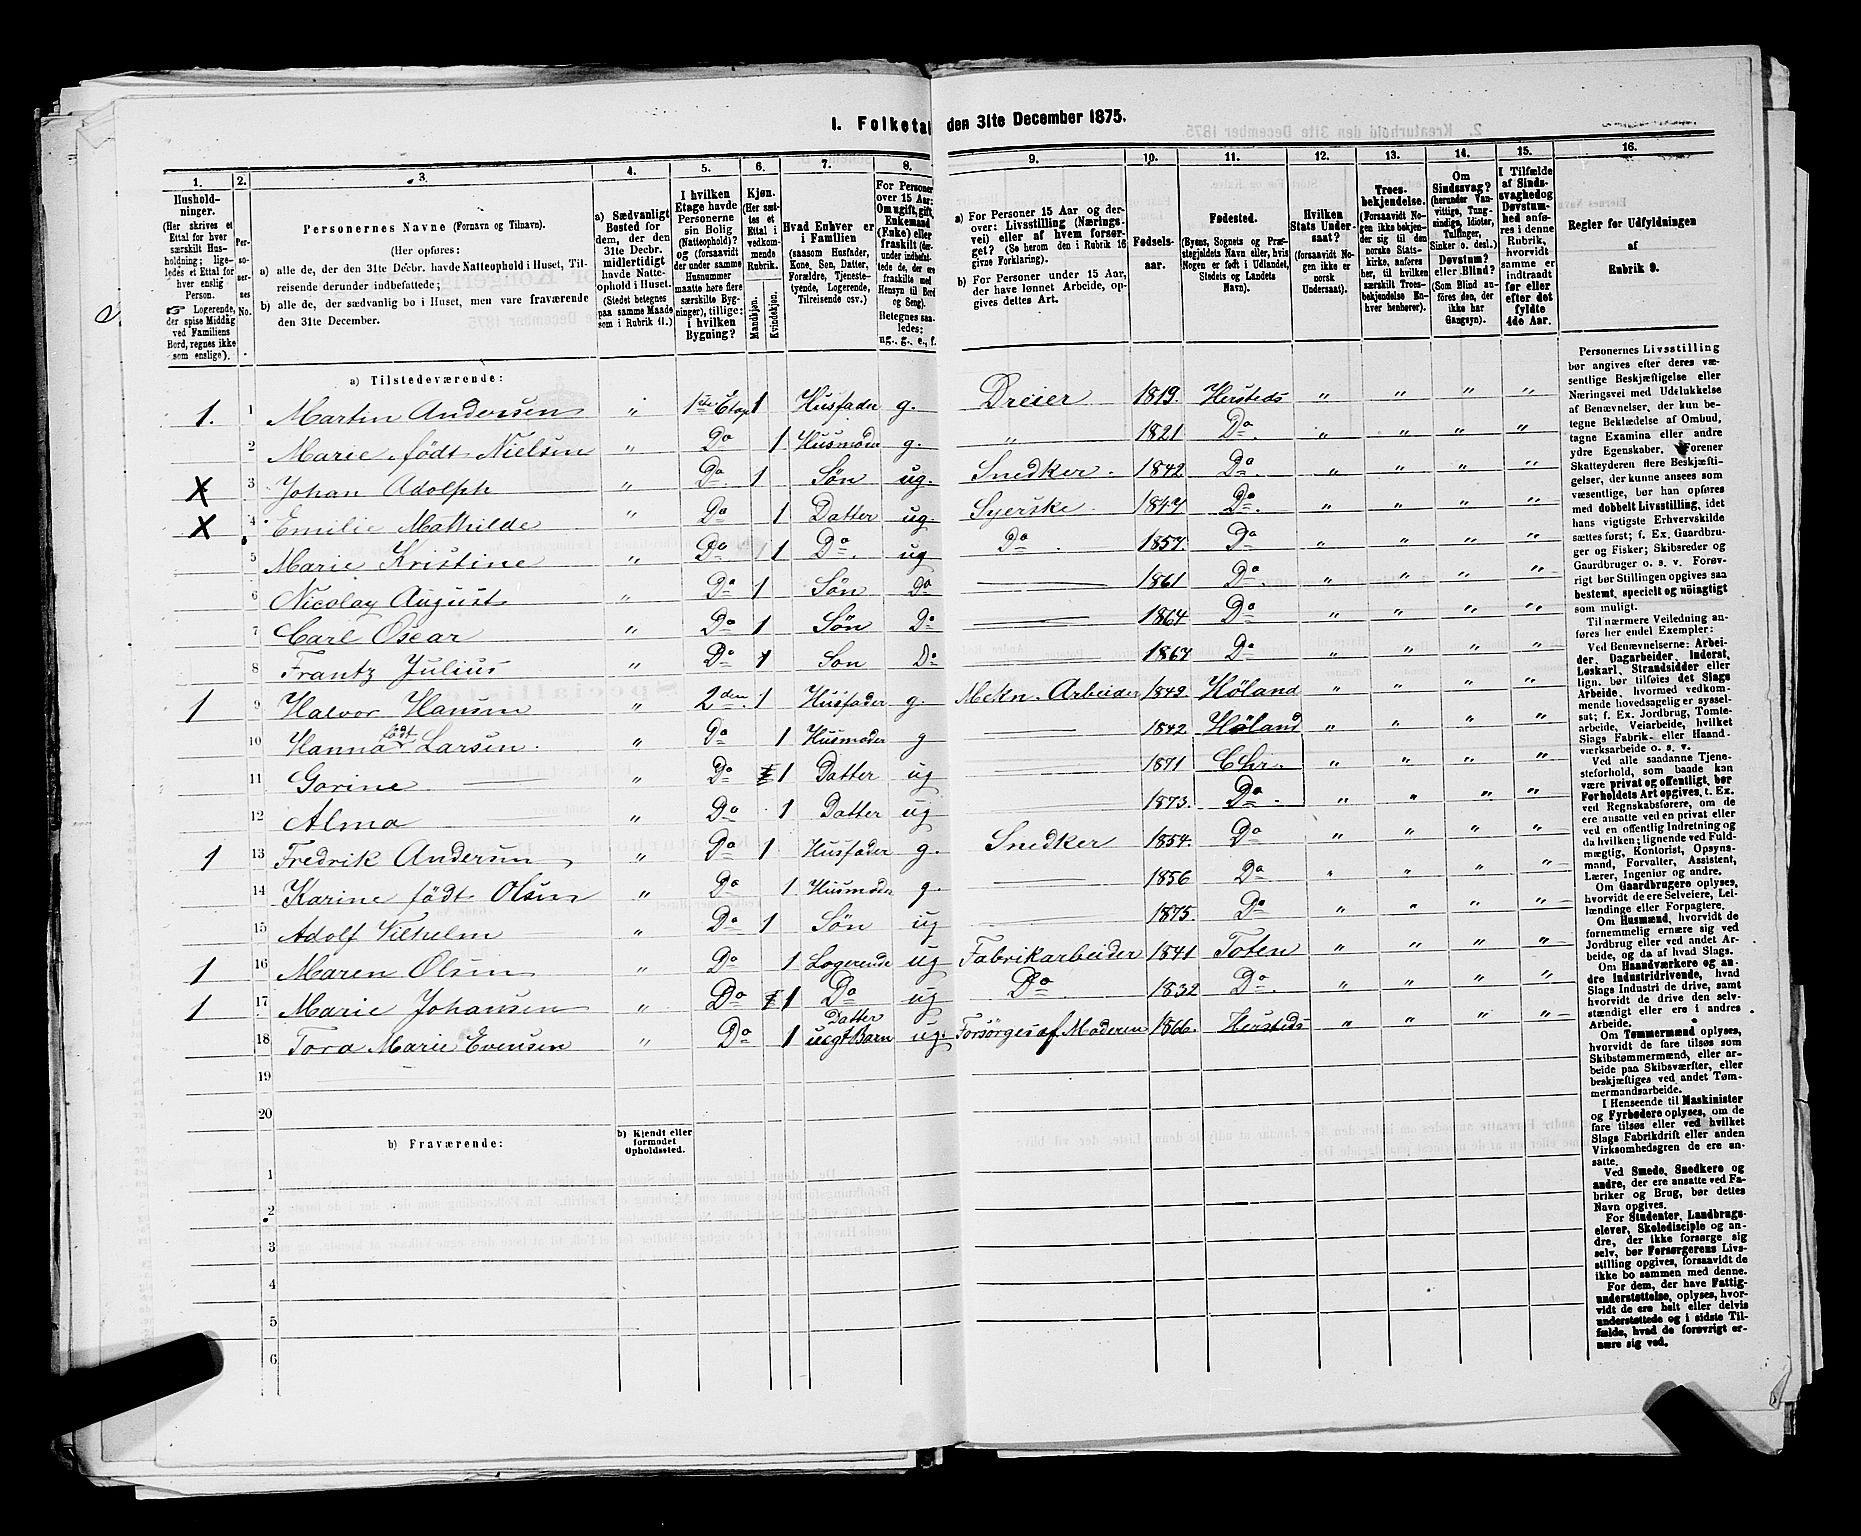 I. Folketal den 31te December 1875.
1. 2. 3. 4. 5. 6. 7. 8. 9. 10. 11. 12. 13. 14. 15. 16.
Hushold-
ninger.
(Her skrives et
Ettal for hver
særskilt Hus-
holdning; lige-
ledes et Ettal for
hver enslig
Person.
Logerende,
der spise Middag
ved Familiens
Bord, regnes ikke
som enslige).
Per-
so-
ner-
nes
No.
Personernes Navne (Fornavn og Tilnavn).
(Her opføres:
a) alle de, der den 31te Decbr. havde Natteophold i Huset, Til-
reisende derunder indbefattede;
b) alle de, der sædvanlig bo i Huset, men vare fraværende
den 31te December.
a) Sædvanligt
Bosted for
dem, der den
31te Decbr.
midlertidigt
havde Natte-
ophold i Huset.
(Stedet betegnes
paa samme Maade
som i Rubrik 11.)
I hvilken
Etage havde
Personerne
sin Bolig
(Natteophold)?
og (forsaavidt
der under samme
Husnummer
maatte høre flere
særskilte Byg-
ninger), tillige:
i hvilken
Bygning?
Kjøn.
(Her sæt-
tes et
Ettal i
vedkom-
mende
Rubrik.
Mandskjøn.
Kvindekjøn.
Hvad Enhver er
i Familien
(saasom Husfader,
Kone, Søn, Datter,
Forældre, Tjeneste-
tyende, Logerende,
Tilreisende osv.)
For Personer
over 15 Aar:
Om ugift, gift,
Enkemand
(Enke) eller
fraskilt (der-
under indbefat-
tede de, der ere
fraskilte med
Hensyn til Bord
og Seng).
Betegnes saa-
ledes:
ug., g., e., f.
a) For Personer 15 Aar og der-
over: Livsstilling (Nærings-
vei) eller af hvem forsør-
get? (Se herom den i Rubrik 16
givne Forklaring).
b) For Personer under 15 Aar,
der have lønnet Arbeide, op-
gives dettes Art.
Fødsels-
aar.
Fødested.
(Byens, Sognets og Præ-
stegjeldets Navn eller, hvis
Nogen er født i Udlandet,
Stedets og Landets
Navn).
Hvilken
Stats Under-
saat?
(forsaavidt No-
gen ikke er
norsk
Undersaat).
Troes-
bekjendelse.
(Forsaavidt No-
gen ikke bekjen-
der sig til den
norske Stats-
kirke, anføres
her, til hvilken
særskilt Troes-
bekjendelse En-
hver henhører).
Om
Sindssvag?
(herunder Van-
vittige, Tung-
sindige, Idioter,
Tullinger,
Sinker o. desl.)
Døvstum?
eller Blind?
(Som Blind an-
føres den, der
ikke har
Gangsyn).
I Tilfælde
af Sinds-
svaghed og
Døvstum-
hed anfø-
res i denne
Rubrik,
hvorvidt
samme er
indtraadt
før eller
efter det
fyldte
4de Aar.
Regler for Udfyldningen
af
Rubrik 9.
a) Tilstedeværende:
1. 1 Martin Andersen " 1ste Etag 1 Husfader g. Dreier 1819. Hersteds " " " "
2 Marie født Nielsen " Do 1 Husmoder g. " 1821 Do. " " " "
X 3 Johan Adolph " Do. 1 Søn ug. Snedker. 1842 Do. " " " "
X 4 Emilie Mathilde " Do 1 Datter ug Syerske. 1847 Do. " " " "
5 Marie Kristine " Do 1 Do. ug Do. 1857. Do " " " "
6 Nicolay August " Do 1 Søn Do 1861 Do. " " " "
7 Carl Oscar " Do 1 Søn Do 1864 Do. " " " "
8 Frantz Julius " Do 1 Søn Do 1867 Do " " " "
1 9 Halvor Hansen " 2den. 1 Husfader g. Mekn. Arbeider 1842. Høland " " " "
10 Hanna født Larsen. " Do 1 Husmoder g 1842 Høland " " " "
11 Gorine " Do 1 Datter ug 1871 Chr. " " " "
12 Alma " Do 1 Datter ug 1873. Do. " " " "
1 13 Fredrik Andersen " Do 1 Husfader g. Snedker 1854. Do " " " "
14 Karine født Olsen " Do 1 Husmoder g. 1856 Do " " " "
15 Adolf Vilhelm " Do 1 Søn ug 1875. Do " " " "
1 16 Maren Olsen " Do 1 Logerende ug Fabrikarbeider 1841 Toten " " " "
1 17 Marie Johansen " Do 1 Do ug Do 1832 Do. " " " "
18 Tora Marie Evensen " Do 1 Datter uegt Barn ug. Forsørges af Moderen 1866. Hersteds " " " "
19
20
b) Fraværende:
b) Kjendt eller
formodet
Opholdssted.
1
2
3
4
5
6
Personernes Livsstilling
bør angives efter deres væ-
sentlige Beskjæftigelse eller
Næringsvei med Udelukkelse
af Benævnelser, der kun be-
tegne Beklædelse af Ombud,
tagne Examina eller andre
ydre Egenskaber. Forener
Skatteyderen flere Beskjæfti-
gelser, der kunne ansees som
væsentlige, bør han opføres
med dobbelt Livsstilling, idet
hans vigtigste Erhvervskilde
sættes først; f. Ex. Gaardbru-
ger og Fisker; Skibsreder og
Gaardbruger o. s. v. Forøv-
rigt bør Stillingen opgives saa
bestemt, specielt og nöiagtigt
som muligt.
Til nærmere Veiledning an-
føres her endel Exempler:
Ved Benævnelserne: Arbei-
der, Dagarbeider, Inderst,
Løskarl, Strandsidder eller
lign. bør tilføies det Slags
Arbeide, hvormed vedkom-
mende hovedsagelig er syssel-
sat; f. Ex. Jordbrug, Tomte-
arbeide, Veiarbeide, hvilket
Slags Fabrik- eller Haand-
værksarbeide o. s. v.
Ved alle saadanne Tjene-
steforhold, som baade kan
være privat og offentligt, bør
Forholdets Art opgives, t. Ex.
ved Regnskabsførere, om de
ere ansatte ved en privat eller
ved en offentlig Indretning og
da hvilken; lignende ved Fuld-
mægtig, Kontorist, Opsyns-
mand, Forvalter, Assistent,
Lærer, Ingeniør og andre.
Om Gaardbrugere oplyses,
hvorvidt de ere Selveiere, Lei-
lændinge eller Forpagtere.
Om Husmænd, hvorvidt de
fornemmelig ernære sig ved
Jordbrug eller ved andet Ar-
beide, og da af hvad Slags.
Om Haandværkere og an-
dre Industridrivende, hvad
Slags Industri de drive, samt
hvorvidt de drive den selv-
stændigt eller ere i andres
Arbeide.
Om Tømmermænd oplyses,
hvorvidt de fare tilsøs som
Skibstømmermænd, eller ar-
beide paa Skibsværfter, eller
beskjæftiges ved andet Tøm-
mermandsarbeide.
I Henseende til Maskinister
og Fyrbødere oplyses, om de
fare tilsøs eller ved hvilket
Slags Fabrikdrift eller anden
Virksomhedsgren de ere an-
satte.
Ved Smede, Snedkere og
andre, der ere ansatte ved Fa-
briker og Brug, bør dettes
Navn opgives.
For Studenter, Landbrugs-
elever, Skoledisciple og an-
dre, der ikke forsørge sig
selv, bør Forsørgerens Livs-
stilling opgives, forsaavidt de
ikke bo sammen med denne.
For dem, der have Fattig-
understøttelse, oplyses, hvor-
vidt de ere helt eller delvis
understøttede og i sidste Til-
fælde, hvad de forøvrigt er-
nære sig ved.